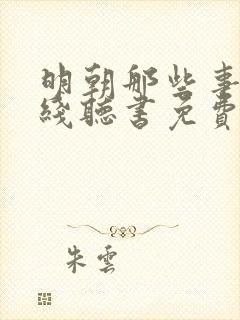 明朝那些事
綫聽書免費
朱雲